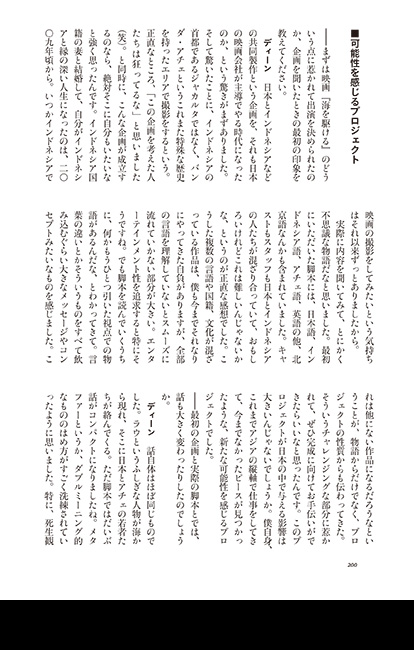 ■可能性を感じるプロジェクト
――まずは映画『海を駆ける』のどう
いう点に惹かれて出演を決められたの
か、企画を聞いたときの最初の印象を
教えてください。
ディーン　日本とインドネシアなど
の共同製作という企画を、それも日本
の映画会社が主導でやる時代になった
のか、という驚きがまずありました。
そして驚いたことに、インドネシアの
首都であるジャカルタではなく、バン
ダ・アチェというこれまた特殊な歴史
を持ったエリアで撮影をするという。
正直なところ「この企画を考えた人
たちは狂ってるな」と思いました
（笑）。と同時に、こんな企画が成立す
るのなら、絶対そこに自分もいたいな
と強く思ったんです。インドネシア国
籍の妻と結婚して、自分がインドネシ
アと縁の深い人生になったのは、二〇
〇九年頃から。いつかインドネシアで
映画の撮影をしてみたいという気持ち
はそれ以来ずっとありましたから。
実際に内容を聞いてみて、とにかく
不思議な物語だなと思いました。最初
にいただいた脚本には、日本語、イン
ドネシア語、アチェ語、英語の他、北
京語なんかも含まれていました。キャ
ストもスタッフも日本とインドネシア
の人たちが混ざり合っていて、おもし
ろいけれどこれは難しいんじゃないか
な、というのが正直な感想でした。こ
うした複数の言語や国籍、文化が混ざ
っている作品は、僕も今までそれなり
にやってきた自負がありますが、全部
の言語を理解していないとスムーズに
流れていかない部分が大きい。エンタ
ーテインメント性を追求すると特にそ
うですね。でも脚本を読んでいくうち
に、何かもうひとつ引いた視点での物
語があるんだな、とわかってきて。言
葉の違いとかそういうものをすべて飲
み込むぐらい大きなメッセージやコン
セプトみたいなものを感じました。こ
れは他にない作品になるだろうなとい
うことが、物語からだけでなく、プロ
ジェクトの性質からも伝わってきた。
そういうチャレンジングな部分に惹か
れて、ぜひ完成に向けてお手伝いがで
きたらいいなと思ったんです。このプ
ロジェクトが日本の中で与える影響は
大きいんじゃないでしょうか。僕自身、
これまでアジアの縦軸で仕事をしてき
て、今までなかったピースが見つかっ
たような、新たな可能性を感じるプロ
ジェクトでした。
――最初の企画と実際の脚本とでは、
話も大きく変わったりしたのでしょう
か。
ディーン　話自体はほぼ同じもので
した。ラウというふしぎな人物が海か
ら現れ、そこに日本とアチェの若者た
ちが絡んでくる。ただ脚本ではだいぶ
話がコンパクトになりましたね。メタ
ファーというか、ダブルミーニング的
なもののはめ方がすごく洗練されてい
ったように思いました。特に、死生観
200